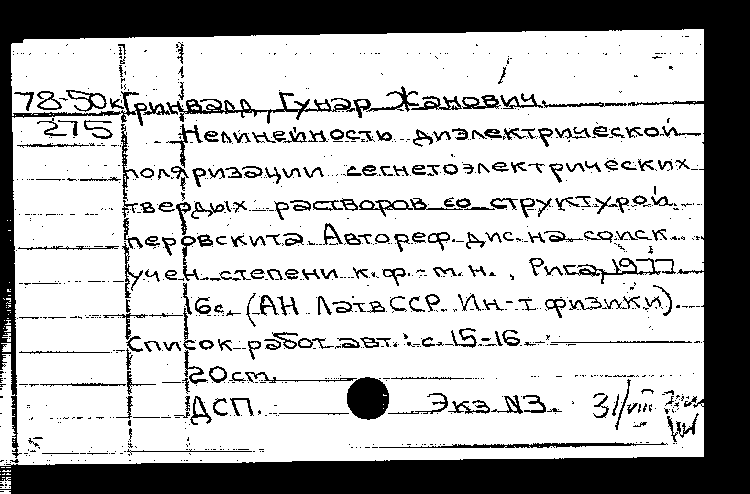 78-50к Гринвалд, Гунар Жанович.
275 Нелинейность диэлектрической
поляризации сегнетоэлектрических
твердых растворов со структурой
перовскита. Автореф. дис. на соиск.
учен. степени к.ф.-м.н., Рига, 1977.
16с. (АН ЛатвССР. Ин-т физики).
Список работ авт.: с. 15-16.
20cm.
ДСП. Экз. N3. 31/VIII
5